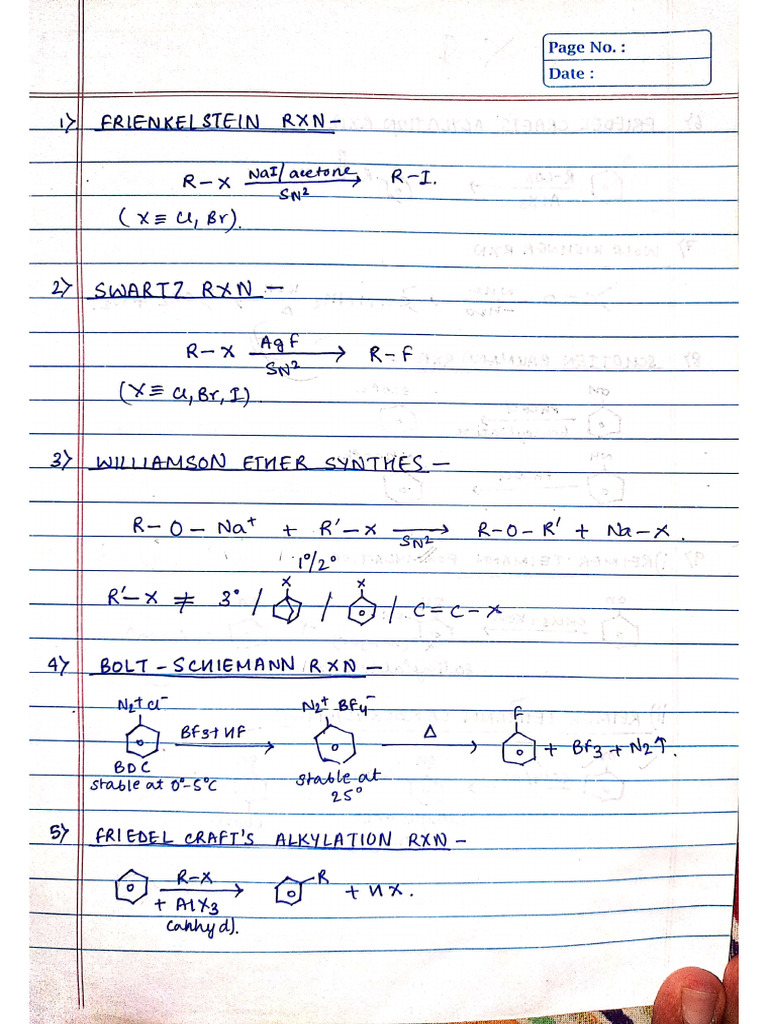 Page No. :
Date :
1) FRIENKELSTEIN RXN –
R–X NaI/acetone → R–I.
SN2
(X ≡ Cl, Br).
2) SWARTZ RXN –
R–X AgF → R–F
SN2
(X ≡ Cl, Br, I).
3) WILLIAMSON ETHER SYNTHES –
R–O–Na+ + R'–X → R–O–R' + Na–X.
SN2
1°/2°
X X
R'–X ≠ 3° / / / C=C–X
4) BOLT–SCHIEMANN RXN –
N2+Cl– N2+ BF4– F
BF3+HF → Δ → + BF3 + N2↑.
BDC
stable at 0°-5°C
stable at
25°
5) FRIEDEL CRAFT'S ALKYLATION RXN –
R–X → R + HX.
+ AlX3
(anhyd).